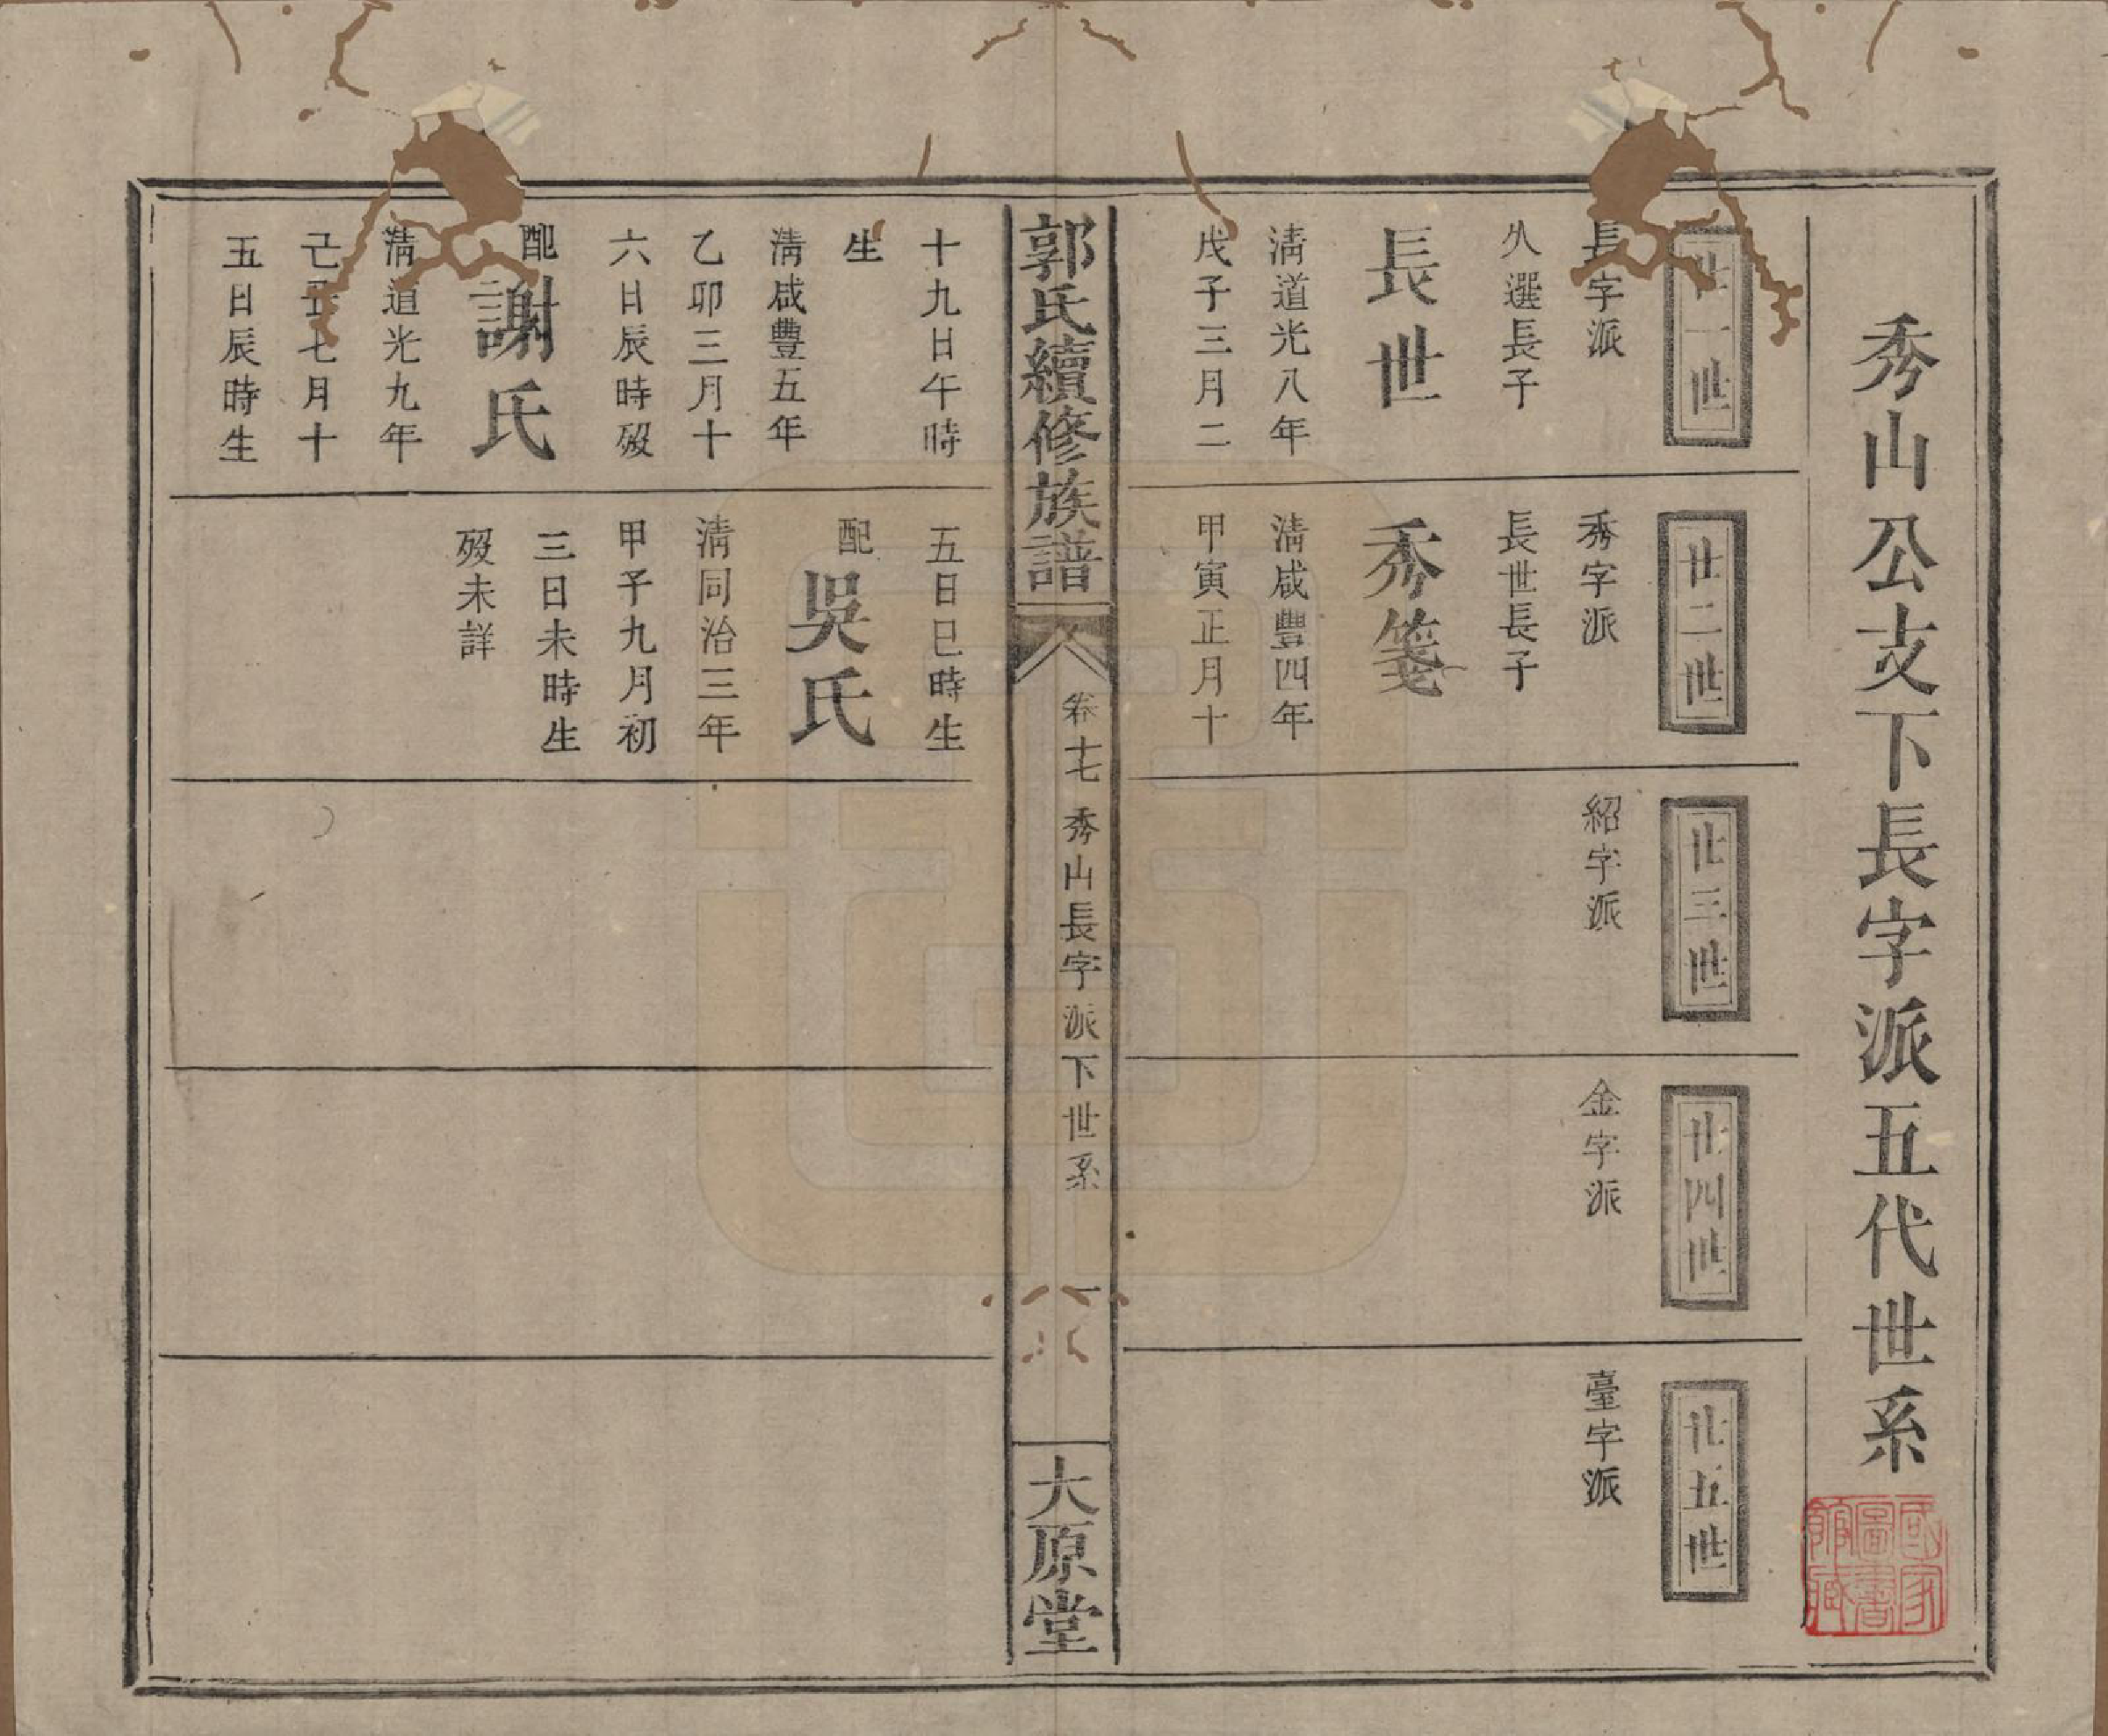 秀山公支下長字派五代世系
國家圖書館藏
廿一世
長字派
久選長子
長世
淸道光八年
戊子三月二
廿二世
秀字派
長世長子
秀箋
淸咸豐四年
甲寅正月十
廿三世
紹字派
廿四世
金字派
廿五世
臺字派
郭氏續修族譜
卷十七 秀山長字派下世系
一
大原堂
十九日午時
生
淸咸豐五年
乙卯三月十
六日辰時歿
配謝氏
淸道光九年
己丑七月十
五日辰時生
五日巳時生
配吳氏
淸同治三年
甲子九月初
三日未時生
歿未詳